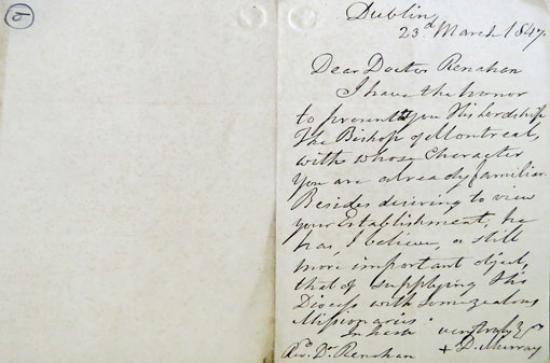 5
Dublin
23d March 1847.
Dear Doctor Renahan
I have the honor
to present to you His Lordship
The Bishop of Montreal,
with whose Character
you are already familiar.
Besides desiring to view
your Establishment, he
has, I believe, a still
more important object,
that of supplying His
Diocess with some zealous
Missionaries.
In haste very truly yrs
Revd. Dr. Renahan + D. Murray